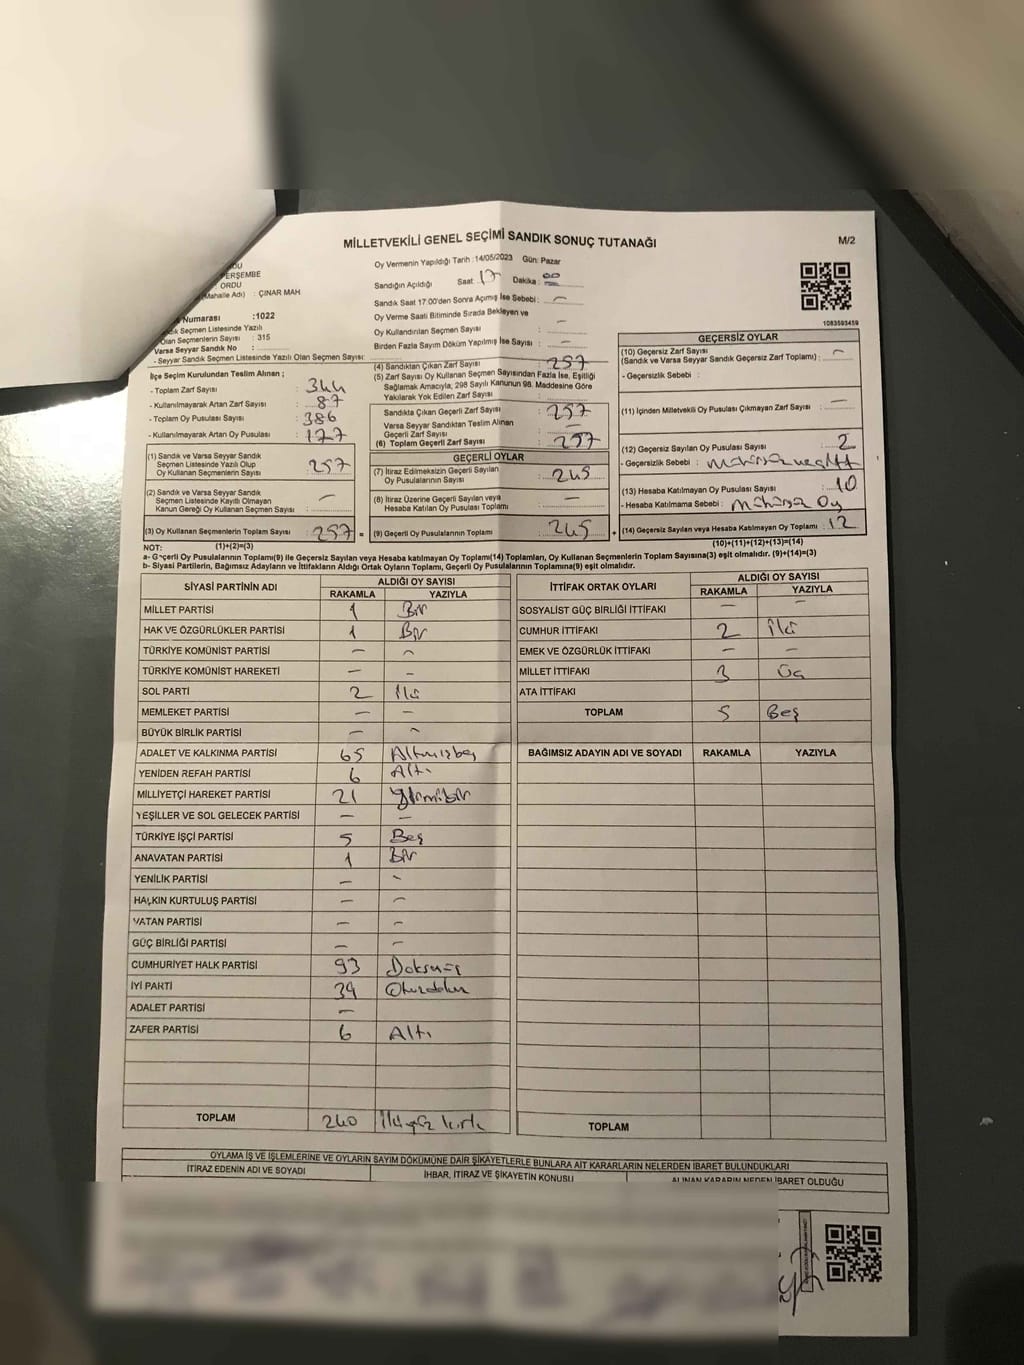 MİLLETVEKİLİ GENEL SEÇİMİ SANDIK SONUÇ TUTANAĞI
M/2
ERŞEMBE
ORDU
(Mahalle Adı) : ÇINAR MAH
Oy Vermenin Yapıldığı Tarih :14/05/2023 Gün: Pazar
Sandığın Açıldığı Saat : 17 Dakika : 00
Sandık Saat 17:00'den Sonra Açımış İse Sebebi : —
Oy Verme Saati Bitiminde Sırada Bekleyen ve
Oy Kullandırılan Seçmen Sayısı : —
Birden Fazla Sayım Döküm Yapılmış İse Sayısı : —
1083593459
Numarası :1022
Seçmen Listesinde Yazılı
Olan Seçmenlerin Sayısı : 315
Varsa Seyyar Sandık No :
- Seyyar Sandık Seçmen Listesinde Yazılı Olan Seçmen Sayısı:
İlçe Seçim Kurulundan Teslim Alınan ;
- Toplam Zarf Sayısı : 344
- Kullanılmayarak Artan Zarf Sayısı : 87
- Toplam Oy Pusulası Sayısı : 386
- Kullanılmayarak Artan Oy Pusulası : 127
(1) Sandık ve Varsa Seyyar Sandık
Seçmen Listesinde Yazılı Olup
Oy Kullanan Seçmenlerin Sayısı : 257
(2) Sandık ve Varsa Seyyar Sandık
Seçmen Listesinde Kayıtlı Olmayan
Kanun Gereği Oy Kullanan Seçmen Sayısı : —
(3) Oy Kullanan Seçmenlerin Toplam Sayısı : 257 =
(4) Sandıktan Çıkan Zarf Sayısı : 257
(5) Zarf Sayısı Oy Kullanan Seçmen Sayısından Fazla İse, Eşitliği
Sağlamak Amacıyla, 298 Sayılı Kanunun 98. Maddesine Göre
Yakılarak Yok Edilen Zarf Sayısı :
Sandıkta Çıkan Geçerli Zarf Sayısı : 257
Varsa Seyyar Sandıktan Teslim Alınan
Geçerli Zarf Sayısı : —
(6) Toplam Geçerli Zarf Sayısı : 257
GEÇERLİ OYLAR
(7) İtiraz Edilmeksizin Geçerli Sayılan
Oy Pusulalarının Sayısı : 245
(8) İtiraz Üzerine Geçerli Sayılan veya
Hesaba Katılan Oy Pusulaları Toplamı : —
(9) Geçerli Oy Pusulalarının Toplamı : 245 +
GEÇERSİZ OYLAR
(10) Geçersiz Zarf Sayısı
(Sandık ve Varsa Seyyar Sandık Geçersiz Zarf Toplamı) : —
- Geçersizlik Sebebi :
(11) İçinden Milletvekili Oy Pusulası Çıkmayan Zarf Sayısı : —
(12) Geçersiz Sayılan Oy Pusulası Sayısı : 2
- Geçersizlik Sebebi :
(13) Hesaba Katılmayan Oy Pusulası Sayısı : 10
- Hesaba Katılmama Sebebi : Mühürsüz Oy
(14) Geçersiz Sayılan veya Hesaba Katılmayan Oy Toplamı : 12
NOT: (1)+(2)=(3)
(10)+(11)+(12)+(13)=(14)
a- Geçerli Oy Pusulalarının Toplamı(9) ile Geçersiz Sayılan veya Hesaba katılmayan Oy Toplamı(14) Toplamları, Oy Kullanan Seçmenlerin Toplam Sayısına(3) eşit olmalıdır. (9)+(14)=(3)
b- Siyasi Partilerin, Bağımsız Adayların ve İttifakların Aldığı Ortak Oyların Toplamı, Geçerli Oy Pusulalarının Toplamına(9) eşit olmalıdır.
SİYASİ PARTİNİN ADI ALDIĞI OY SAYISI
RAKAMLA YAZIYLA
MİLLET PARTİSİ 1 Bir
HAK VE ÖZGÜRLÜKLER PARTİSİ 1 Bir
TÜRKİYE KOMÜNİST PARTİSİ — —
TÜRKİYE KOMÜNİST HAREKETİ — —
SOL PARTİ 2 İki
MEMLEKET PARTİSİ — —
BÜYÜK BİRLİK PARTİSİ — —
ADALET VE KALKINMA PARTİSİ 65 Altmışbeş
YENİDEN REFAH PARTİSİ 6 Altı
MİLLİYETÇİ HAREKET PARTİSİ 21 Yirmibir
YEŞİLLER VE SOL GELECEK PARTİSİ — —
TÜRKİYE İŞÇİ PARTİSİ 5 Beş
ANAVATAN PARTİSİ 1 Bir
YENİLİK PARTİSİ — —
HALKIN KURTULUŞ PARTİSİ — —
VATAN PARTİSİ — —
GÜÇ BİRLİĞİ PARTİSİ — —
CUMHURİYET HALK PARTİSİ 93 Doksanüç
İYİ PARTİ 39 Otuzdokuz
ADALET PARTİSİ —
ZAFER PARTİSİ 6 Altı
TOPLAM 240 İkiyüz kırk
İTTİFAK ORTAK OYLARI ALDIĞI OY SAYISI
RAKAMLA YAZIYLA
SOSYALİST GÜÇ BİRLİĞİ İTTİFAKI — —
CUMHUR İTTİFAKI 2 İki
EMEK VE ÖZGÜRLÜK İTTİFAKI — —
MİLLET İTTİFAKI 3 Üç
ATA İTTİFAKI
TOPLAM 5 Beş
BAĞIMSIZ ADAYIN ADI VE SOYADI RAKAMLA YAZIYLA
TOPLAM
OYLAMA İŞ VE İŞLEMLERİNE VE OYLARIN SAYIM DÖKÜMÜNE DAİR ŞİKAYETLERLE BUNLARA AİT KARARLARIN NELERDEN İBARET BULUNDUKLARI
İTİRAZ EDENİN ADI VE SOYADI İHBAR, İTİRAZ VE ŞİKAYETİN KONUSU ALINAN KARARIN NEDEN İBARET OLDUĞU